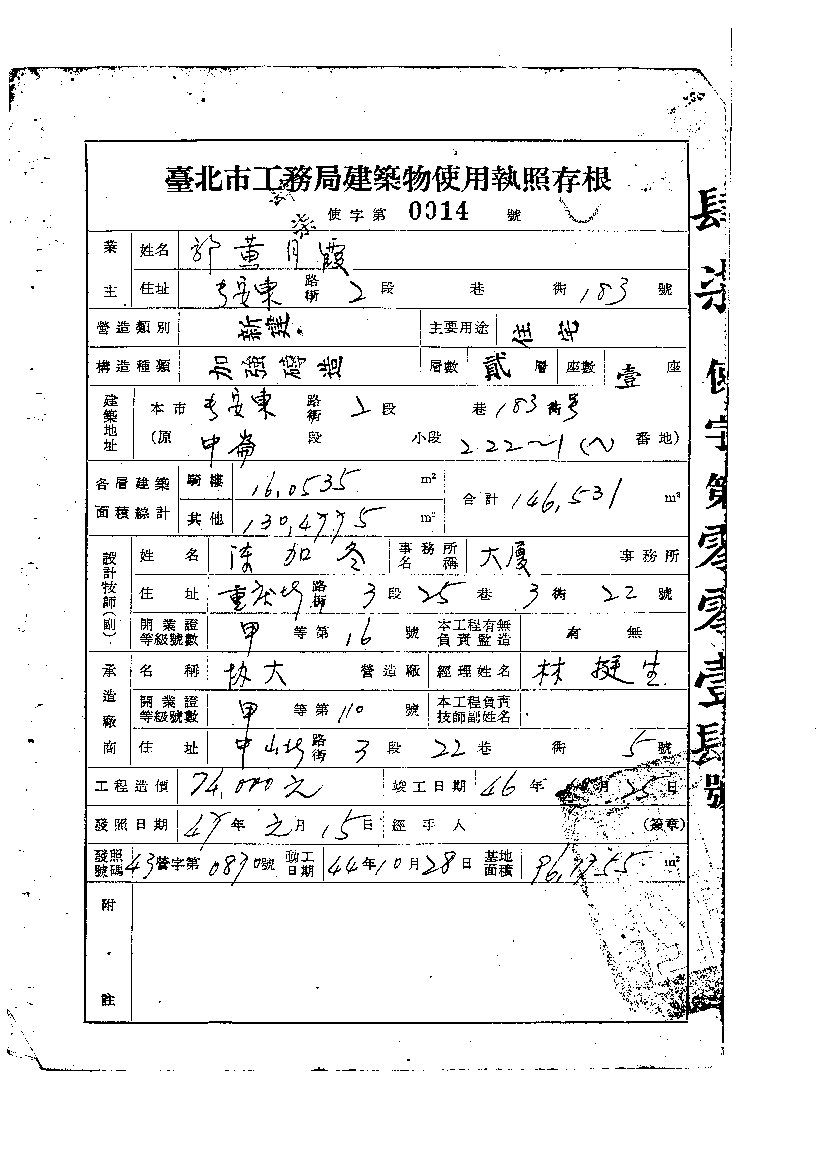 臺北市工務局建築物使用執照存根
使字第 0014 號
業主 姓名 郭黃月霞
住址 長安東 路街 2 段 巷 街 183 號
營造類別 新建 主要用途 住宅
構造種類 加強磚造 層數 貳 層 座數 壹 座
建築地址 本市 長安東 路街 2 段 巷 183 街號
(原 中崙 段 小段 222~1 番地)
各層建築面積綜計 騎樓 16.0535 m² 合計 146.531 m²
其他 130.4775 m²
設計技師(副) 姓名 陳加冬 事務所名稱 大廈 事務所
住址 重慶北 路街 3 段 25 巷 3 街 22 號
開業證等級號數 甲 等第 16 號 本工程有無負責監造 有 無
承造廠商 名稱 協大 營造廠 經理姓名 林挺生
開業證等級號數 甲 等第 110 號 本工程負責技師副姓名
住址 中山北 路街 3 段 22 巷 街 5 號
工程造價 74,000元 竣工日期 46 年 10 月 25 日
發照日期 47 年 元 月 15 日 經手人 (簽章)
發照號碼 43 營字第 0870 號 動工日期 44 年 10 月 28 日 基地面積 96. m²
附註
肆柒使字第零零壹肆號